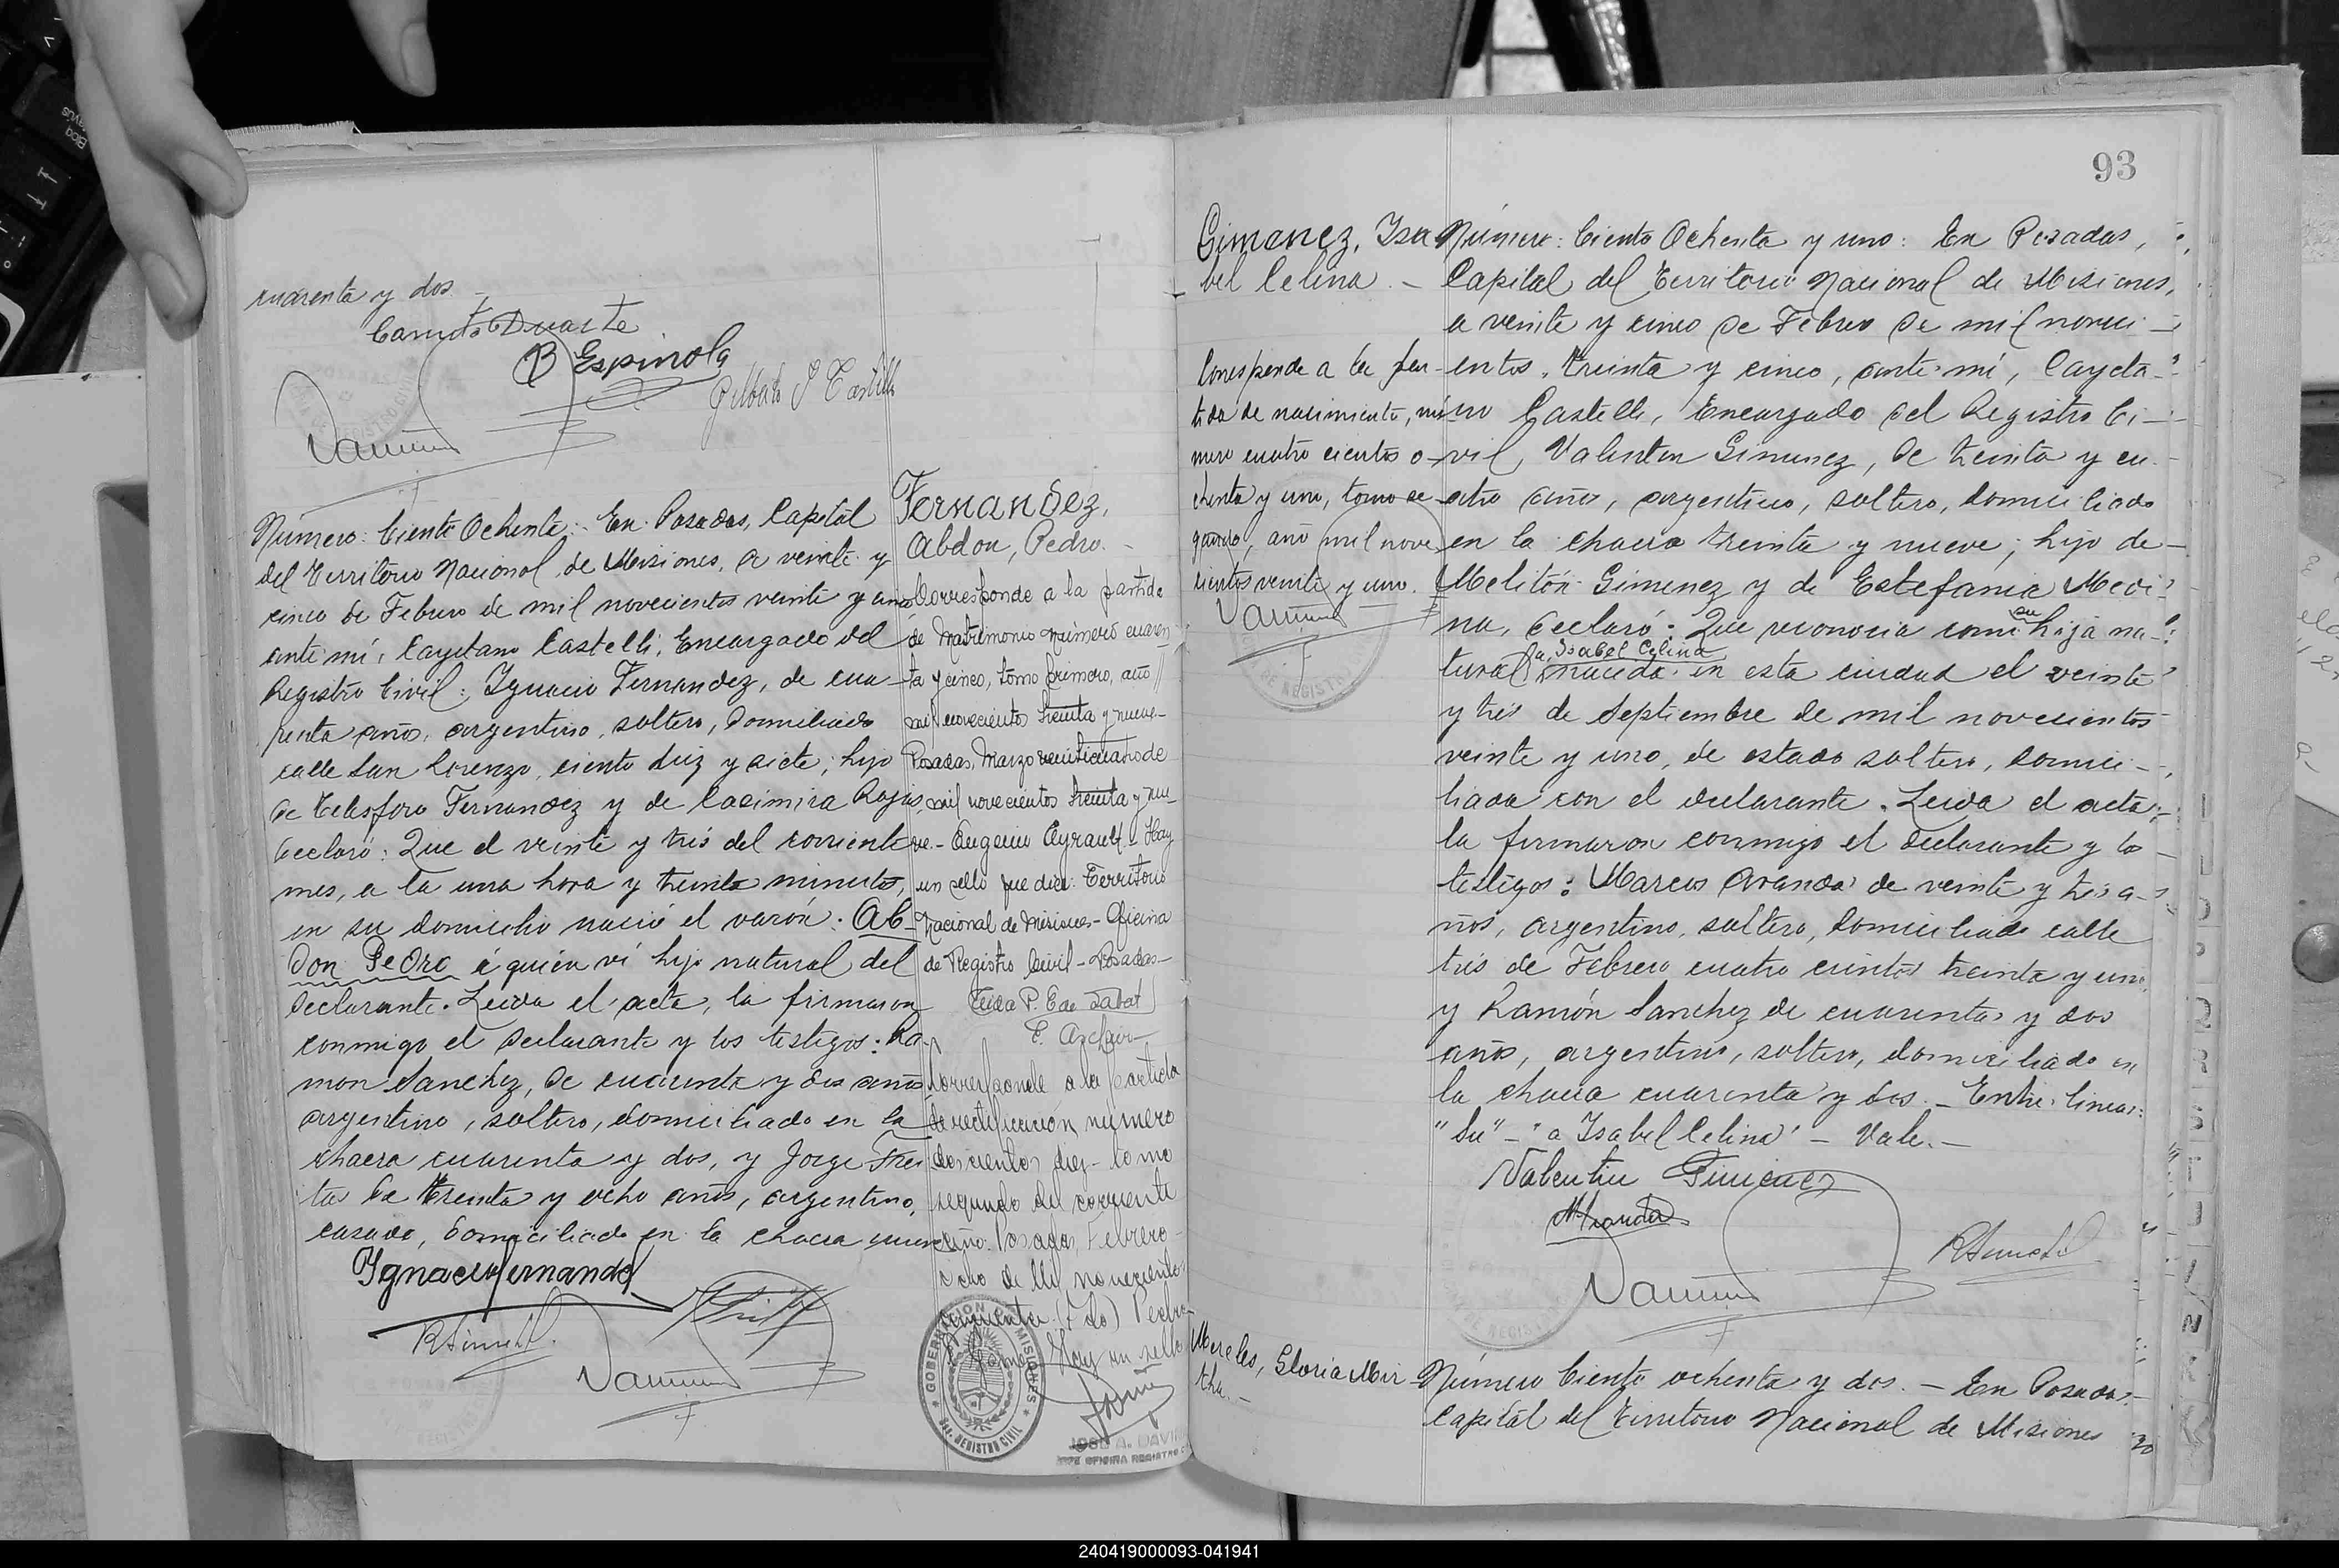 cuarenta y dos -
Camilo Duarte
B Espinola
Gilberto S Castillo
Número: Ciento Ochenta: En Posadas, Capital
del Territorio Nacional de Misiones, a veinte y
cinco de Febrero de mil novecientos veinte y
ante mí, Cayetano Castelli, Encargado del
Registro Civil: Ignacio Fernandez, de cua-
renta años, argentino, soltero, domiciliado
calle San Lorenzo, ciento diez y siete; hijo
de Telesforo Fernandez y de Casimira Rojas,
declaró: Que el veinte y trés del corriente
mes, a la una hora y treinta minutos,
en su domicilio nació el varón: Ab-
don Pedro á quién ví hijo natural del
declarante. Leida el acta, la firmaron
conmigo el declarante y los testigos: Ra-
mon Sanchez, de cuarenta y dos años
argentino, soltero, domiciliado en la
chacra cuarenta y dos, y Jorge
ta de treinta y ocho años, argentino,
casado, domiciliado en la chacra
Ignacio Fernandez
Fernandez,
Abdon, Pedro. -
Corresponde a la partida
de Matrimonio número cuaren
ta y cinco, tomo primero, año //
mil novecientos treinta y nueve-
Posadas, Marzo veinticuatro de
mil novecientos treinta y nue-
ve.- Eugenio Ayrault - Hay
un sello que dice: Territorio
Nacional de Misiones - Oficina
de Registro Civil - Posadas-
Corresponde a la partida
de rectificación número
doscientos diez - tomo
segundo del corriente
año. Posadas, Febrero
ocho de mil novecientos
cincuenta (Fdo) Pedro
Hay un sello
GOBERNACION DE MISIONES
REGISTRO CIVIL
JOSE A. DAVI
JEFE OFICINA REGISTRO C
93
Gimenez, Isa
bel Celina. -
Corresponde a la par-
tida de nacimiento, nú-
mero cuatro cientos o-
chenta y uno, tomo se
gundo, año mil nove
cientos veinte y uno.
Número: Ciento Ochenta y uno: En Posadas,
Capital del Territorio Nacional de Misiones,
a veinte y cinco de Febrero de mil noveci-
entos, treinta y cinco, ante mí, Cayeta-
no Castelli, Encargado del Registro Ci-
vil, Valentin Gimenez, de treinta y cu-
atro años, argentino, soltero, domiciliado
en la chacra treinta y nueve; hijo de
Melitón Gimenez y de Estefania Medi-
na, declaró: Que reconocia como su hija na-
tural a Isabel Celina nacida en esta ciudad el veinte
y trés de Septiembre de mil novecientos
veinte y uno, de estado soltera, domici-
liada con el declarante. Leida el acta
la firmaron conmigo el declarante y lo
testigos: Marcos Aranda de veinte y tres a-
ños, argentino, soltero, domiciliado calle
trés de Febrero cuatro cientos treinta y uno,
y Ramón Sanchez de cuarenta y dos
años, argentino, soltero, domiciliado en
la chacra cuarenta y dos. - Entre lineas:
"Su" - "a Isabel Celina" - Vale. -
Valentin Gimenez
MAranda
Mereles, Gloria Mir
tha. -
Número Ciento ochenta y dos. - En Posadas
Capital del Territorio Nacional de Misiones
240419000093-041941